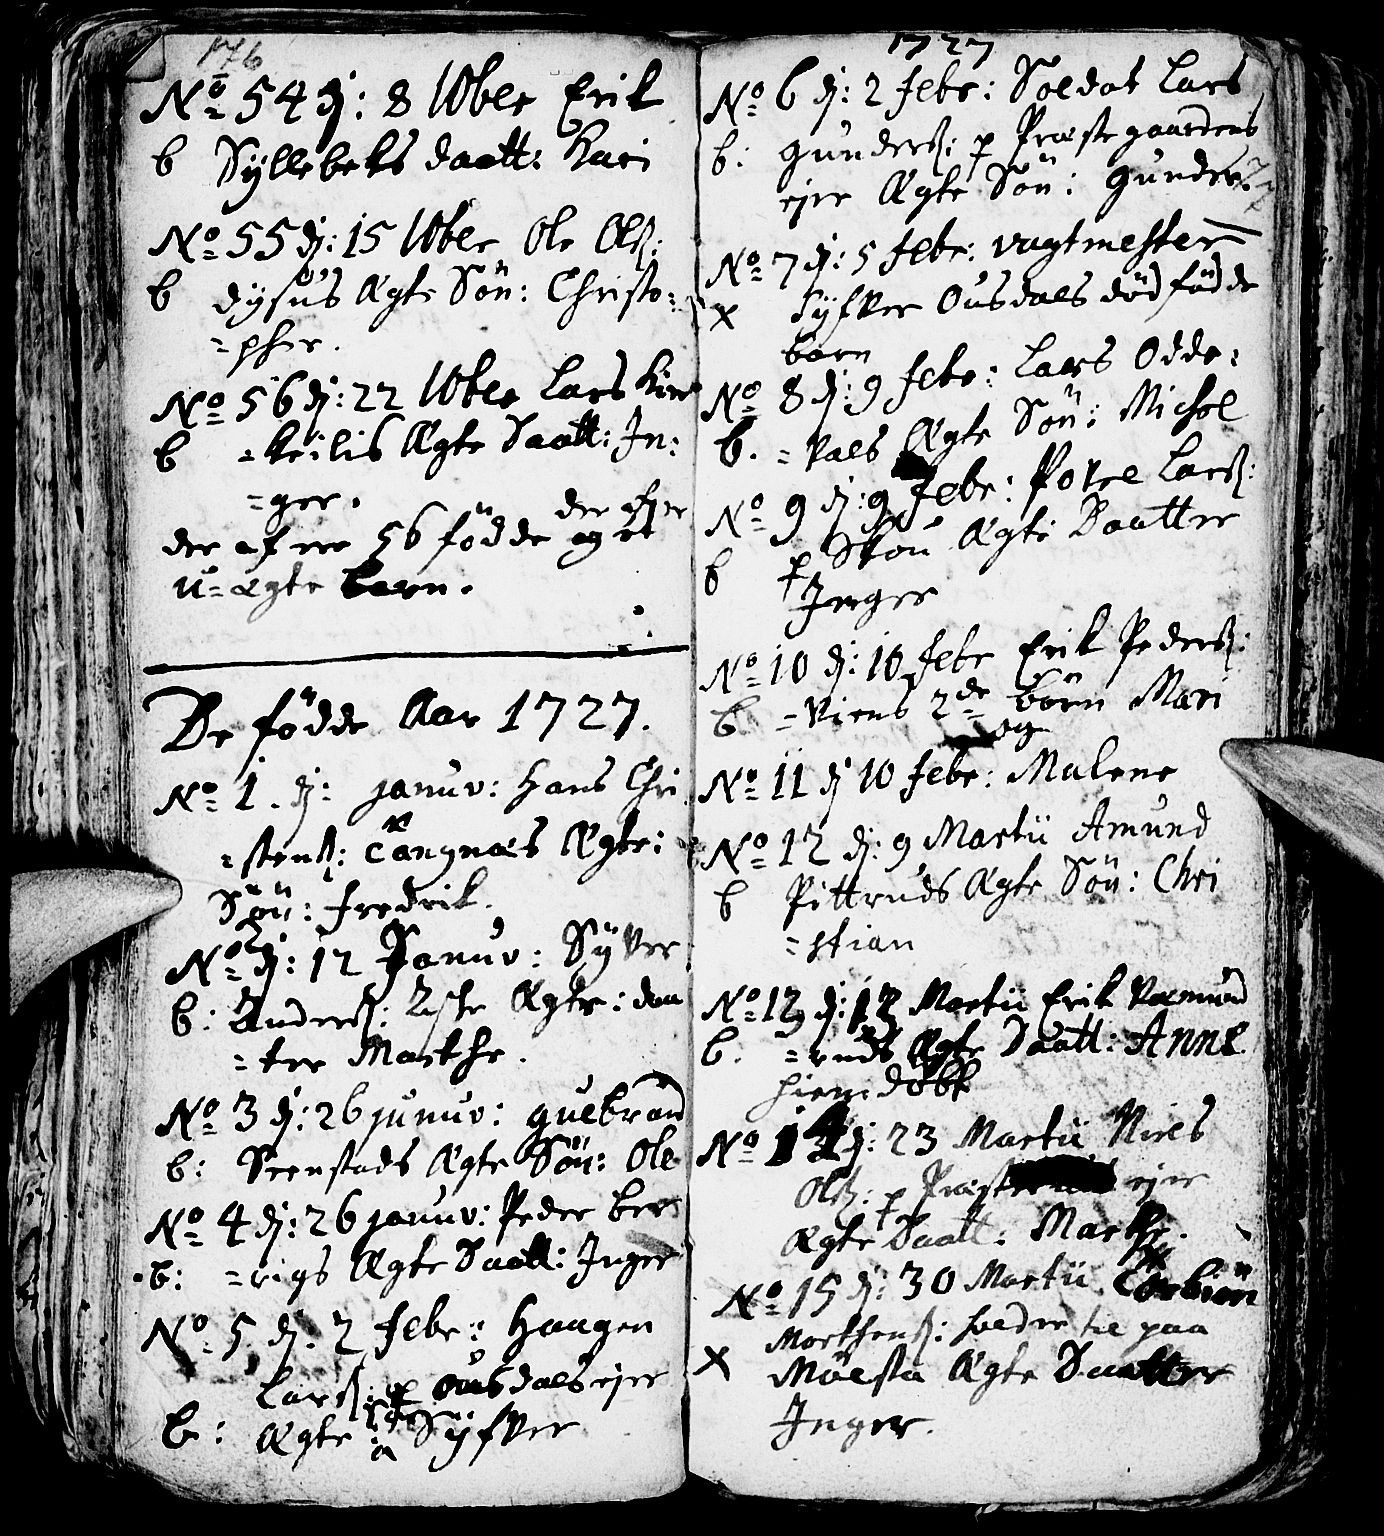 176
No 54 dj: 8 10ber Erik
b Syllebeks daatt: Kari
No 55 dj: 15 10ber Ole Olß:
b dysüs Ægte Sön: Christo-
=pher.
No 56 dj: 22 10ber Lars Kir
b =keilis Ægte Daatt: In:
=ger.
der af er 56 födde og et
u=ægte barn.
De födde Aar 1727.
No 1. dj: januv: Hans Chri
=stenß: Tangnæs Ægte:
Sön: Fredrik.
No 2 dj: 12 Januv: Syver
b: Anderß: Ægte: daa
=tter Marthe.
No 3 dj: 26 januv: gulbrand
b: Seenstads Ægte Sön: Ole
No 4 dj: 26 januv: Peder Ber
b: =vigs Ægte Daatt: Inger
No 5 dj: 2 Febr: Haagen
Larß: p Ousdals ejer
b: Ægte Syfver
1727
No 6 dj: 2 Febr: Soldat Lars
b: gunderß: p Præste gaardens
ejer Ægte Sön: gunder
No 7 dj: 5 Febr: vagtmester
x Syfver Ousdals död födde
barn
No 8 dj: 9 Febr: Lars Odde:
b. =vals Ægte Sön: Michel
No 9 dj: 9 Febr: Povel Larß:
b p Skou Ægte Daatter
Inger
No 10 dj: 10 Febr Erik Pederß:
b =viens 2de börn Mari
og
No 11 dj 10 Febr: Malene
No 12 dj: 9 Martii Amund
b Pittruds Ægte Sön: Chri
=stian
No 13 dj: 12 Martii Erik Ramund
b. =ruds Ægte Daatt: Anne
hiemdöbt
No 14 dj: 23 Martii Niels
Olß: p ejer
Ægte Daatt: Marthe.
No 15 dj: 30 Martii Torbiörn
Morthenß: paa
x Mölsta Ægte Daatter
Inger.